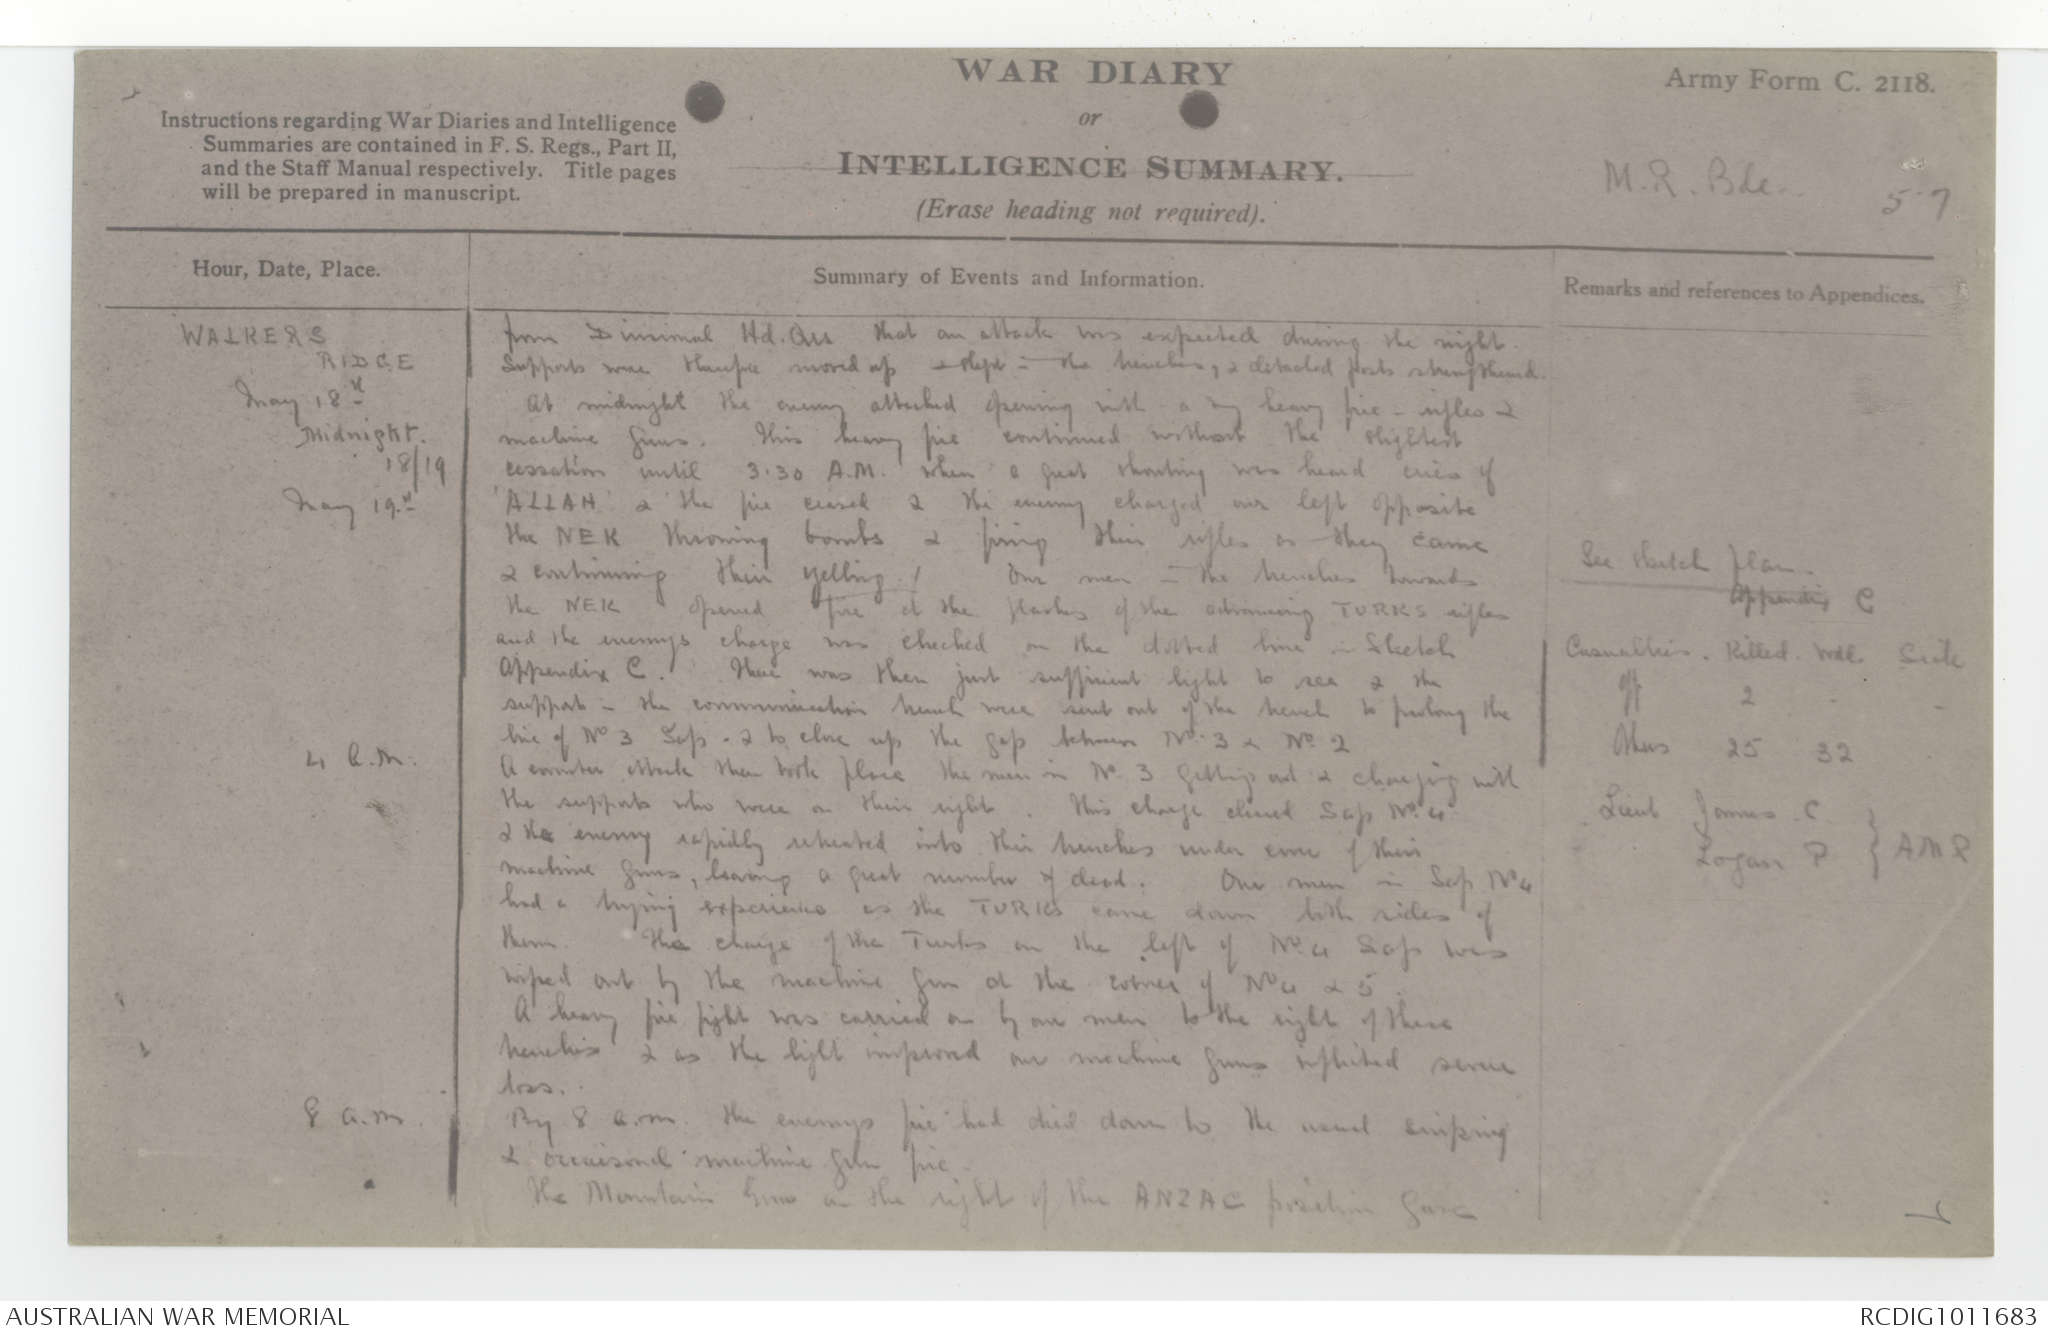 WAR DIARY
or
INTELLIGENCE SUMMARY.
(Erase heading not required).
Army Form C. 2118.
Instructions regarding War Diaries and Intelligence
Summaries are contained in F. S. Regs., Part II,
and the Staff Manual respectively. Title pages
will be prepared in manuscript.
M.R. Bde.
57
Hour, Date, Place.
Summary of Events and Information.
Remarks and references to Appendices.
WALKERS
RIDGE
May 18th
Midnight.
18/19
May 19th
4 a.m.
8 a.m.
from Divisional Hd. Qrs that an attack was expected during the night.
Supports were therefore moved up & slept in the trenches, & detached posts strengthened.
At midnight the enemy attacked opening with a very heavy fire - rifles &
machine guns. This heavy fire continued without the slightest
cessation until 3.30 A.M. when a great shouting was heard cries of
'ALLAH' & the fire ceased & the enemy charged our left opposite
the NEK throwing bombs & firing their rifles as they came
& continuing their yelling! Our men in the trenches towards
the NEK opened fire at the flashes of the advancing TURKS rifles
and the enemys charge was checked on the dotted line in Sketch
Appendix C. There was then just sufficient light to see & the
supports in the communication trench were sent out of the trench to prolong the
line of No 3 Sap - & to close up the gap between No. 3 & No. 2
A counter attack then took place the men in No. 3 getting out & charging with
the supports who were on their right. This charge cleared Sap No. 4
& the enemy rapidly retreated into their trenches under cover of their
machine guns, leaving a great number of dead. Our men in Sap No 4
had a trying experience as the TURKS came down both sides of
them. The charge of the Turks on the left of No. 4 Sap was
wiped out by the machine gun at the corner of No 4 & 5.
A heavy fire fight was carried on by our men to the right of these
trenches & as the light improved our machine guns inflicted severe
loss.
By 8 a.m. the enemys fire had died down to the usual sniping
& occaisonal machine gun fire.
The Mountain Guns on the right of the ANZAC position gave
See sketch plan
Appendix C
Casualties. Killed. Wdd. Sick
Off 2 - -
Others 25 32
Lieut James C
Logan P } AMR
AUSTRALIAN WAR MEMORIAL
RCDIG1011683